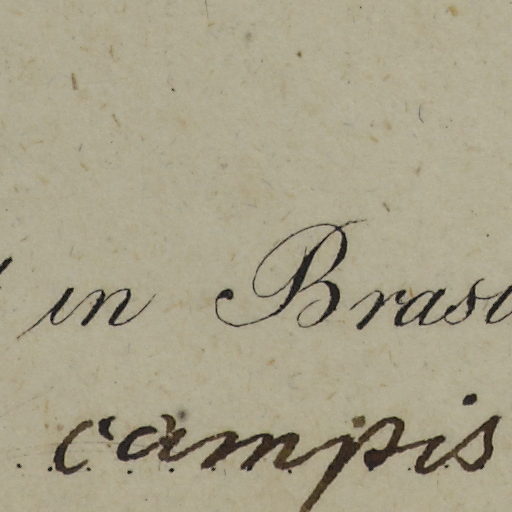 in Brasi
campis